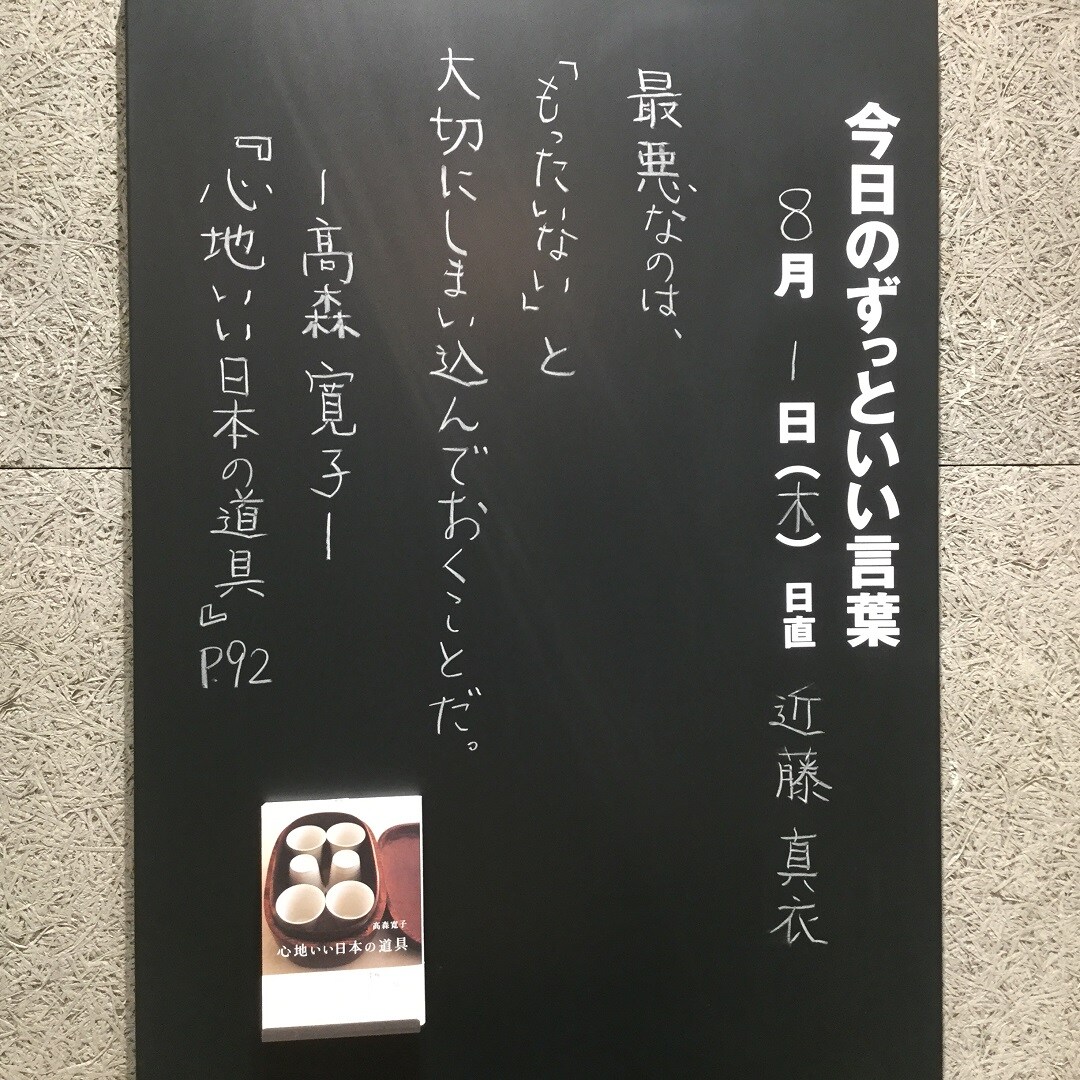 今日のずっといい言葉
8月1日(木)日直 近藤真衣
最悪なのは、
「もったいない」と
大切にしまい込んでおくことだ。
ー高森 寛子ー
『心地いい日本の道具』P.92
高森寛子
心地いい日本の道具